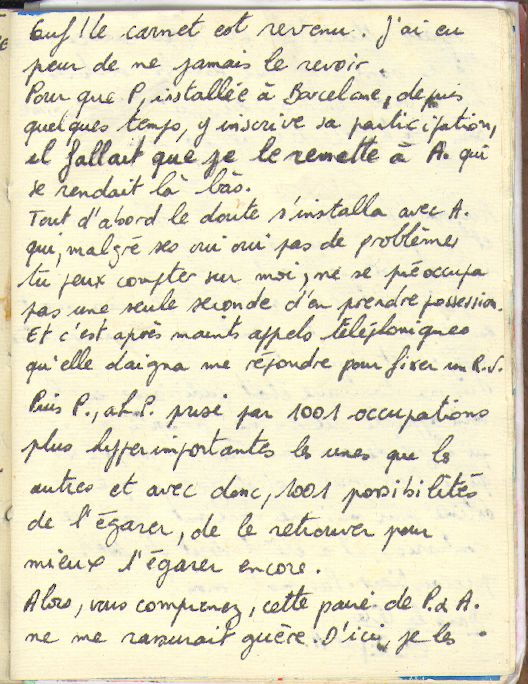 Ouf ! le carnet est revenu. J'ai eu
peur de ne jamais le revoir.
Pour que P, installée à Barcelone, depuis
quelques temps, y inscrive sa participation,
il fallait que je le remette à A. qui
se rendait là bàs.
Tout d'abord le doute s'installa avec A.
qui, malgré ses oui oui pas de problèmes
tu peux compter sur moi, ne se préoccupa
pas une seule seconde d'en prendre possession.
Et c'est après maints appels téléphoniques
qu'elle daigna me répondre pour fixer un R.V.
Puis P., ah P. prise par 1001 occupations
plus hyperimportantes les unes que les
autres et avec donc, 1001 possibilités
de l'égarer, de le retrouver pour
mieux l'égarer encore.
Alors, vous comprenez, cette paire de P. & A.
ne me rassurait guère. D'ici, je les